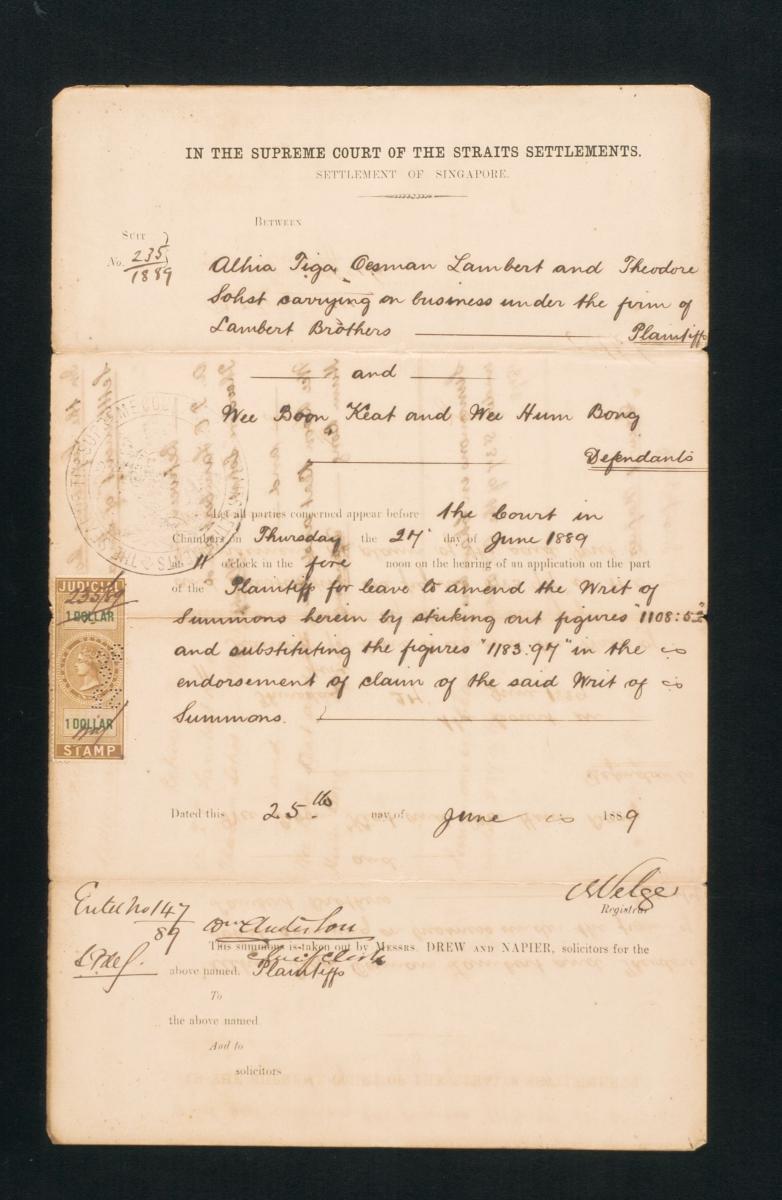 IN THE SUPREME COURT OF THE STRAITS SETTLEMENTS.
SETTLEMENT OF SINGAPORE.
BETWEEN
SUIT
No. 235/1889
Athia Tiga Oesman Lambert and Theodore
Sohst carrying on business under the firm of
Lambert Brothers Plaintiffs
and
Wee Boon Keat and Wee Hum Bong
Defendants
Let all parties concerned appear before the Court in
Chambers on Thursday the 27 day of June 1889
at 11 o'clock in the fore noon on the hearing of an application on the part
of the Plaintiff for leave to amend the Writ of
Summons herein by striking out figures "1108:52"
and substituting the figures "1183.97" in the
endorsement of claim of the said Writ of
Summons.
JUDICIAL
235/89
1 DOLLAR
1 DOLLAR
STAMP
Dated this 25th day of June 1889
Registrar
Entd No 147/89
Wm Anderson
This summons is taken out by MESSRS. DREW AND NAPIER, solicitors for the
above named. Plaintiffs
To
the above named
And to
solicitors